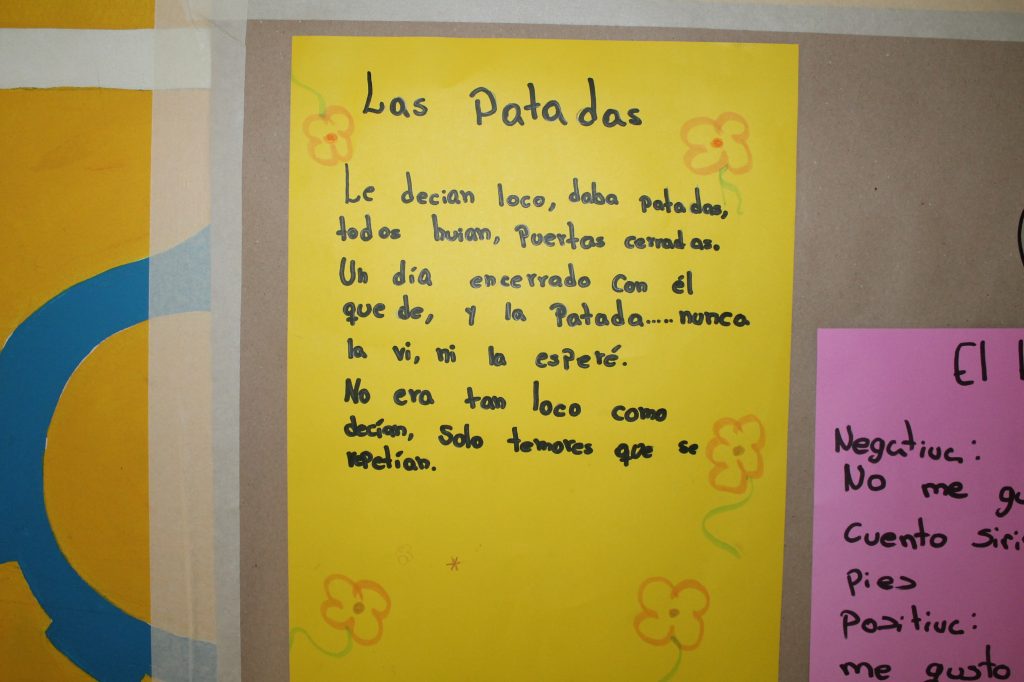 Las Patadas
Le decian loco, daba patadas,
todos huian, Puertas cerradas.
Un día encerrado con él
que de, y la Patada.....nunca
la vi, ni la esperé.
No era tan loco como
decían, Solo temores que se
repetían.
El
Negativa:
No me gu
Cuento
Pies
Positiva:
me gusto